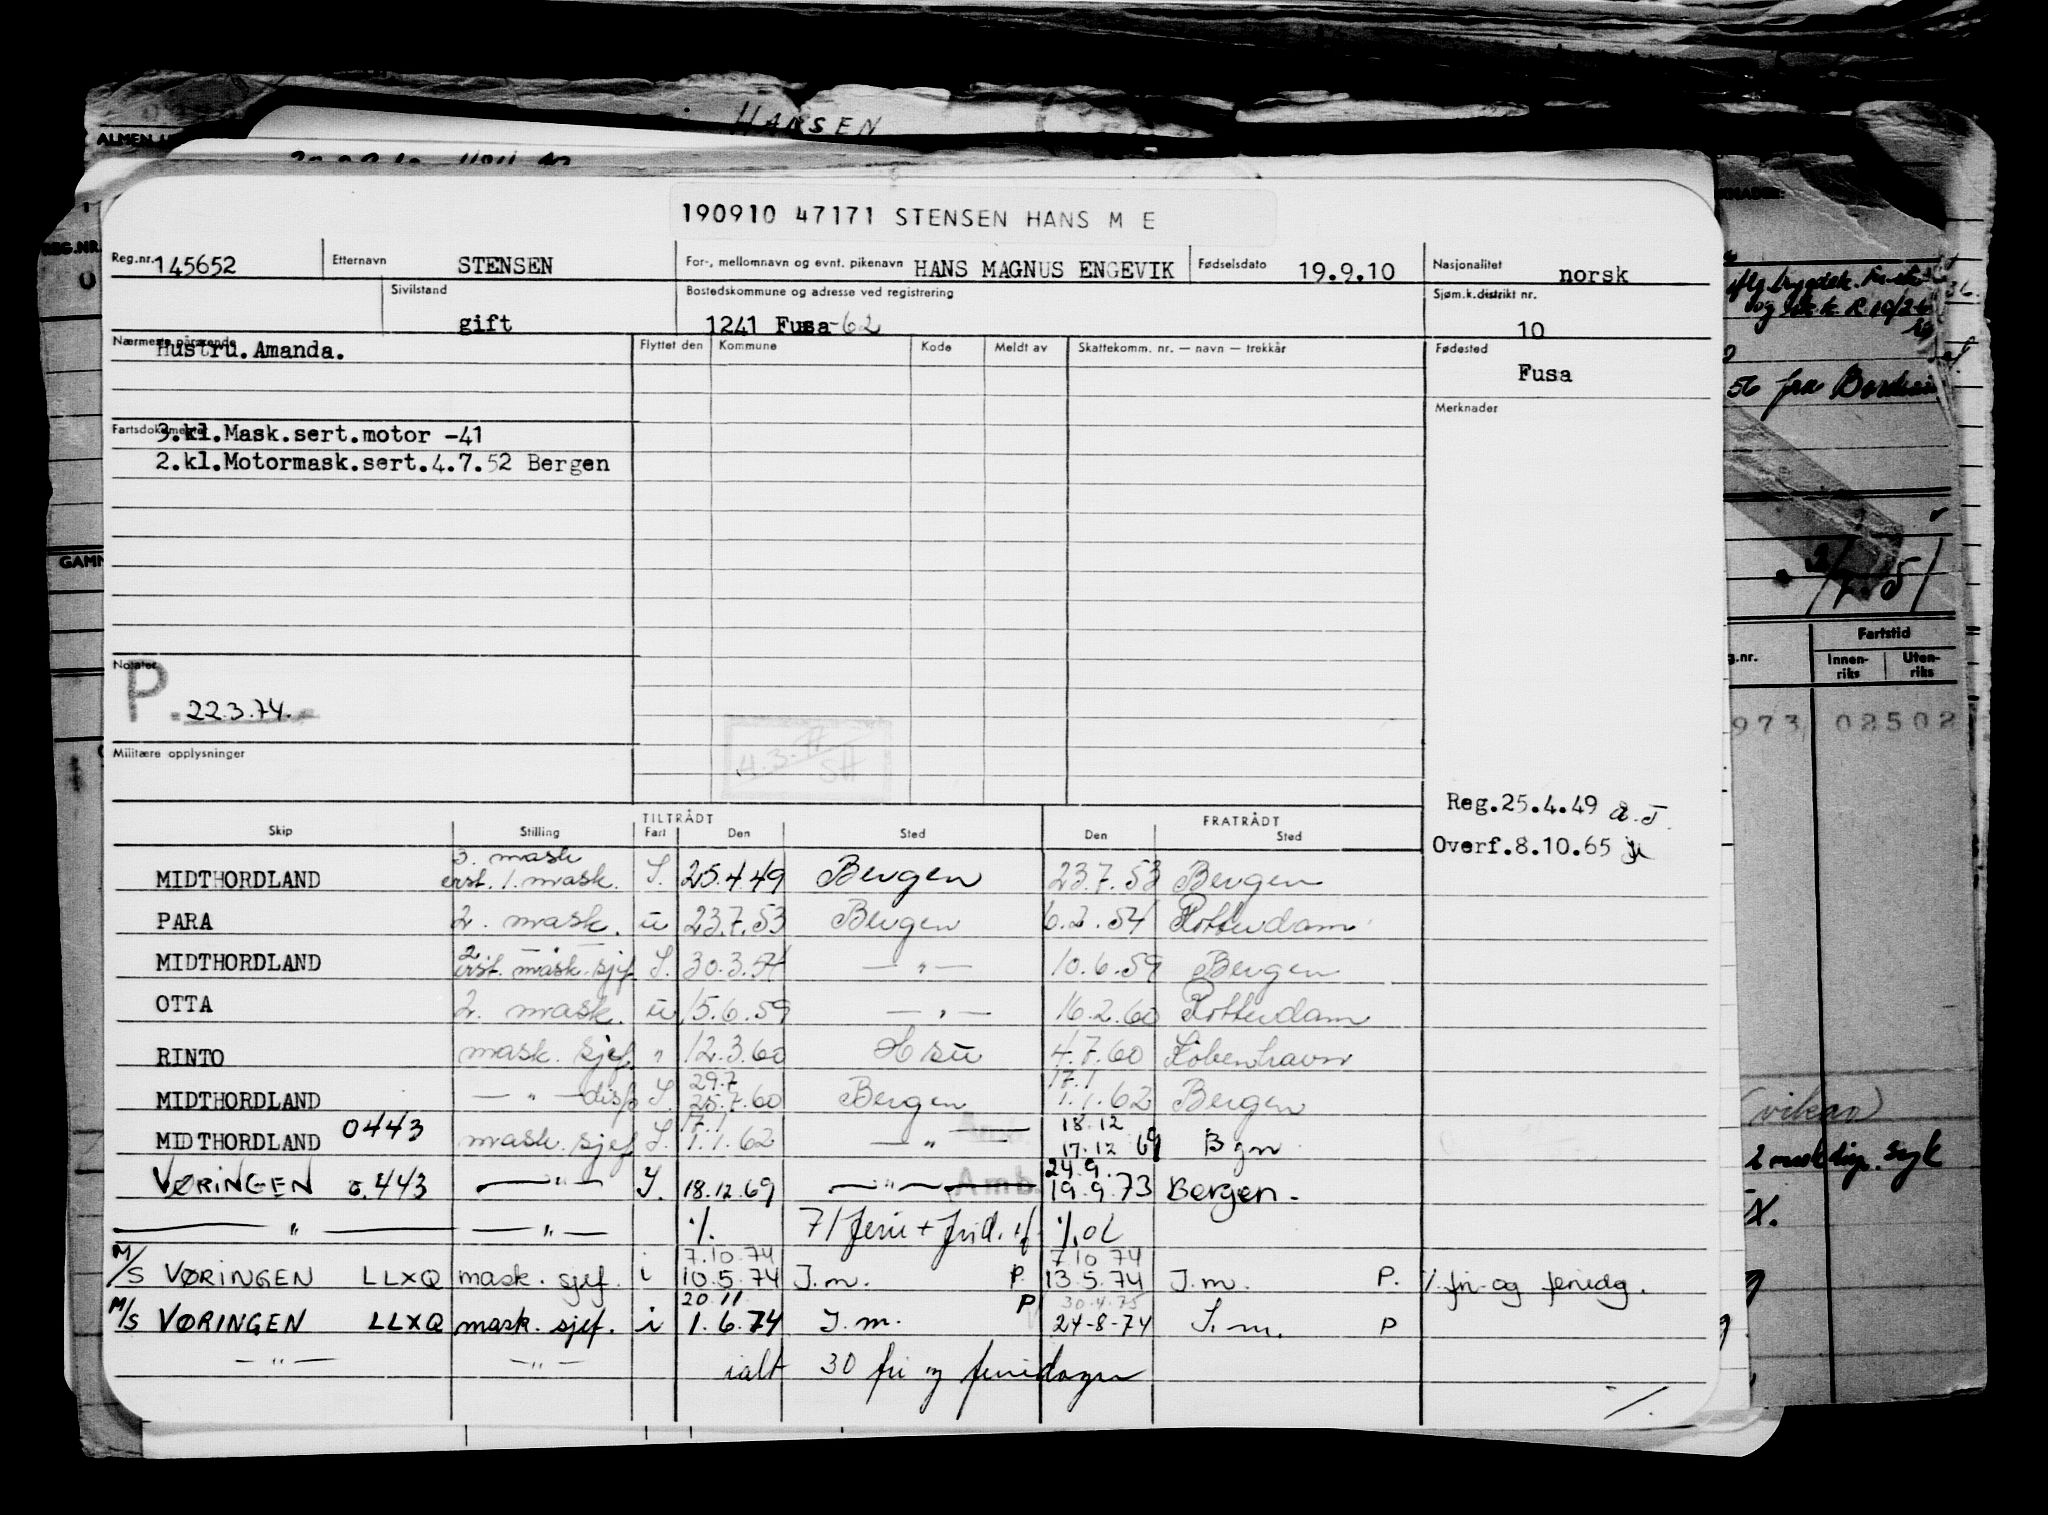 HANSEN
190910 47171 STENSEN HANS M E
Reg.nr. 145652 Etternavn STENSEN For-, mellomnavn og evnt. pikenavn HANS MAGNUS ENGEVIK Fødselsdato 19.9.10 Nasjonalitet norsk
Sivilstand gift Bostedskommune og adresse ved registrering 1241 Fusa-62 Sjøm.k.distrikt nr. 10
Nærmeste pårørende Hustru.Amanda. Flyttet den Kommune Kode Meldt av Skattekomm. nr. — navn — trekkår Fødested Fusa
Merknader
Fartsdokumenter 3.kl.Mask.sert.motor -41
2.kl.Motormask.sert.4.7.52 Bergen
Notater
P. 22.3.74.
Militære opplysninger
Reg.25.4.49
Overf.8.10.65
TILTRÅDT FRATRÅDT
Skip Stilling Fart Den Sted Den Sted
3. mask
MIDTHORDLAND erst. 1. mask. I. 25.4.49 Bergen 23.7.53 Bergen
PARA 2. mask. u 23.7.53 Bergen 6.2.54 Rotterdam
MIDTHORDLAND 2 erst. mask. sjef I. 30.3.54 — " — 10.6.59 Bergen
OTTA 2. mask. u 15.6.59 — " — 16.2.60 Rotterdam
RINTO mask. sjef. " 12.3.60 4.7.60 København
29.7 17.1
MIDTHORDLAND — " — disp I. 25.7.60 Bergen 1.1.62 Bergen
17.1 18.12
MIDTHORDLAND 0443 mask. sjef I. 1.1.62 — " — 17.12 69 Bgn
24.9.
VØRINGEN 0.443 — " — I. 18.12.69 — " — Amb. 19.9.73 Bergen.
— " — — " — %. 71 ferie + frid.
7.10.74 7.10 74
M/S VØRINGEN LLXQ mask. sjef. i 10.5.74 I.m. P. 13.5.74 I.m. P. % fri- og feriedg.
20.11 30.4.75
M/S VØRINGEN LLXQ mask. sjef. i 1.6.74 I.m. P 24-8-74 I.m. P
— " — — " — ialt 30 fri og feriedager
%.
Fartstid
Innen-riks Uten-riks
973 02502